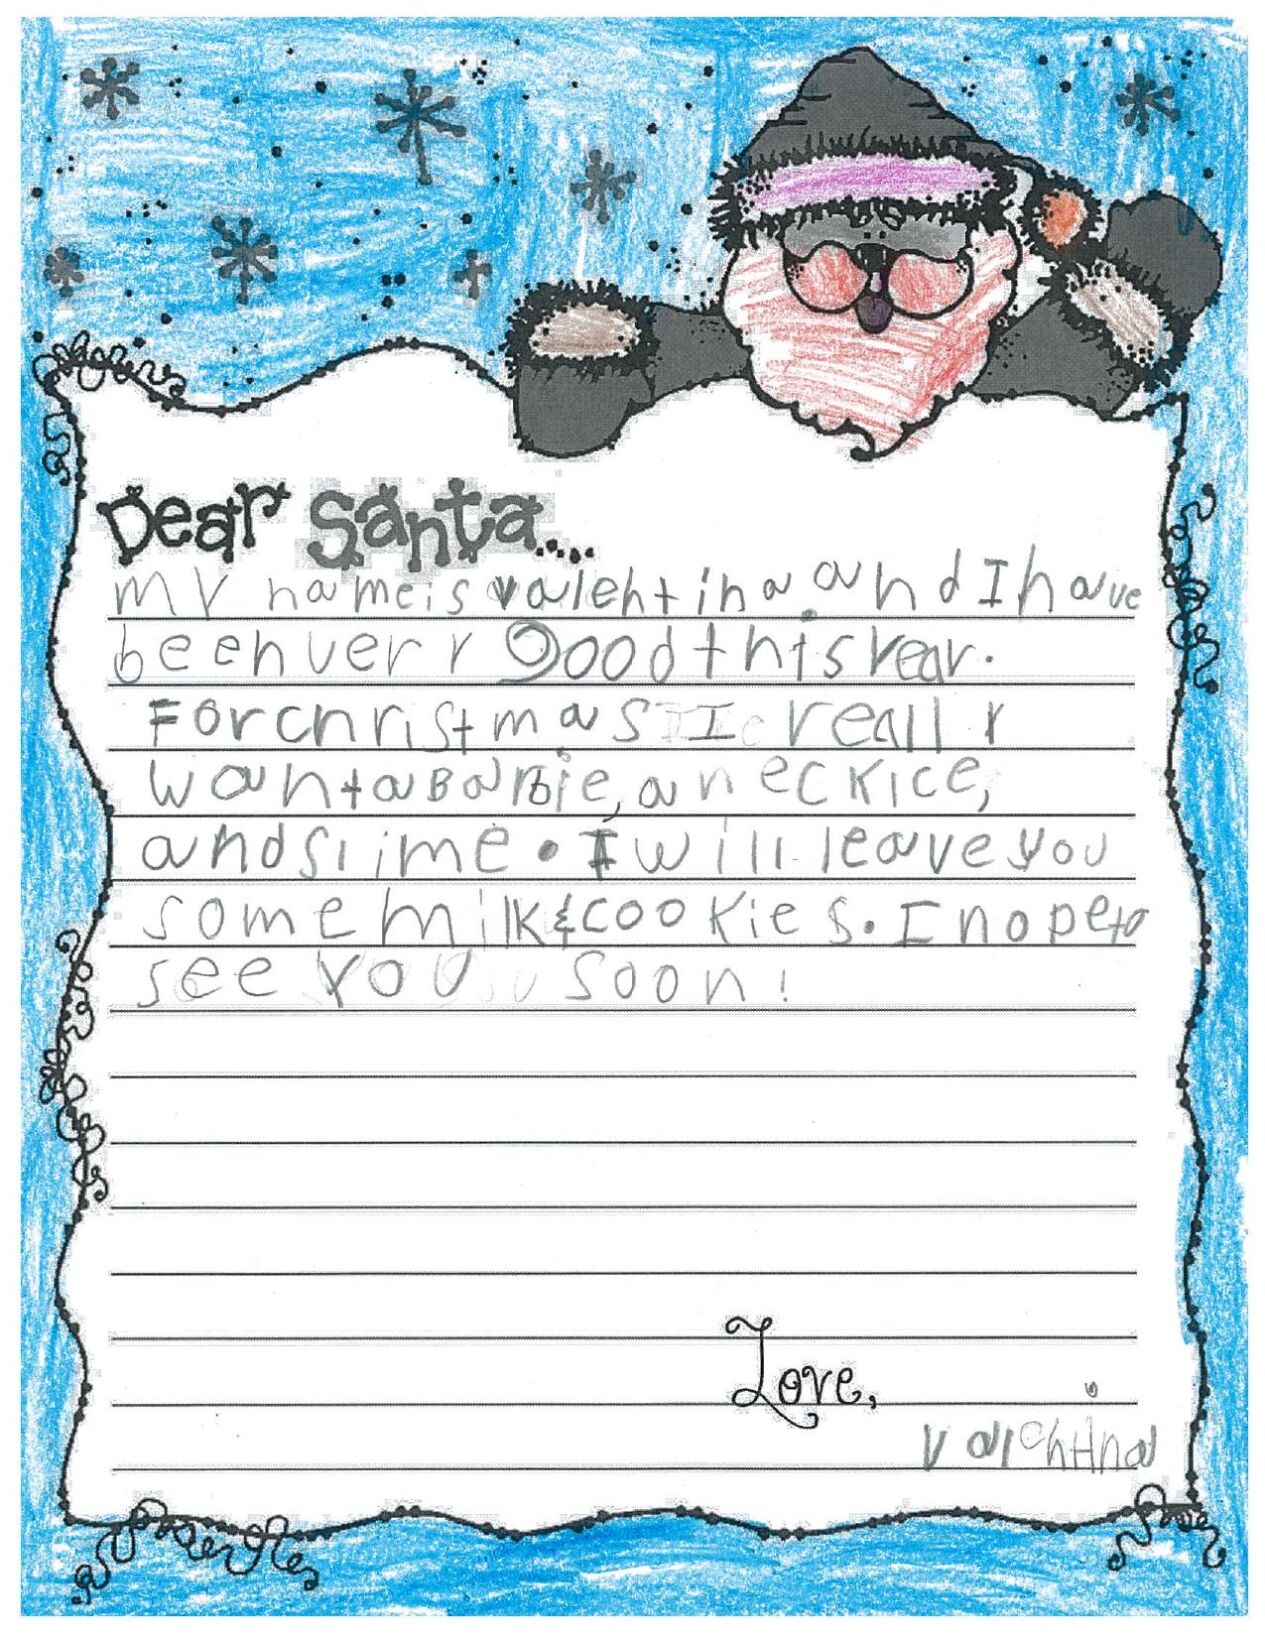 Dear Santa....
my name is valentina and I have
been very good this year.
For christmas I really
want a Barbie, a neckice,
and slime. I will leave you
some milk & cookies. I hope to
see you soon!
Love,
Valentina